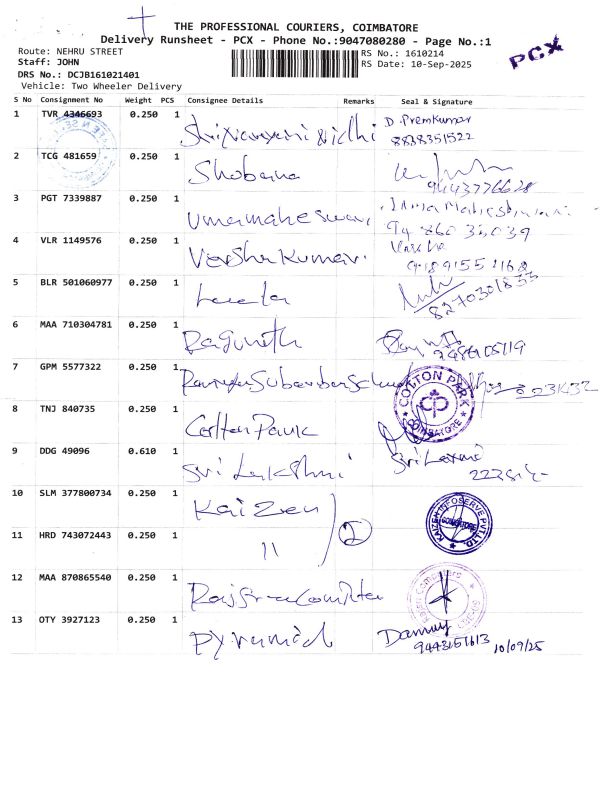 THE PROFESSIONAL COURIERS, COIMBATORE
Delivery Runsheet - PCX - Phone No.:9047080280 - Page No.:1
Route: NEHRU STREET
RS No.: 1610214
Staff: JOHN
RS Date: 10-Sep-2025
PCX
DRS No.: DCJB161021401
Vehicle: Two Wheeler Delivery
S No Consignment No Weight PCS Consignee Details Remarks Seal & Signature
1 TVR 4346693 0.250 1 D. Premkumar
8838351522
2 TCG 481659 0.250 1 Shobana
9443776628
3 PGT 7339887 0.250 1 Umamaheswari
4 VLR 1149576 0.250 1 Varsha Kumari
5 BLR 501060977 0.250 1
8270301833
6 MAA 710304781 0.250 1 Ragunath
7 GPM 5577322 0.250 1
COTTON PARK
COIMBATORE
8 TNJ 840735 0.250 1 Cotton Park
9 DDG 49096 0.610 1 Sri Lakshmi Sri Laxmi
10 SLM 377800734 0.250 1 Kaizen
KAIZEN INFOSERVE PVT.LTD.
COIMBATORE
11 HRD 743072443 0.250 1 11 2
12 MAA 870865540 0.250 1
13 OTY 3927123 0.250 1 Pyramid
9443151613 10/09/25